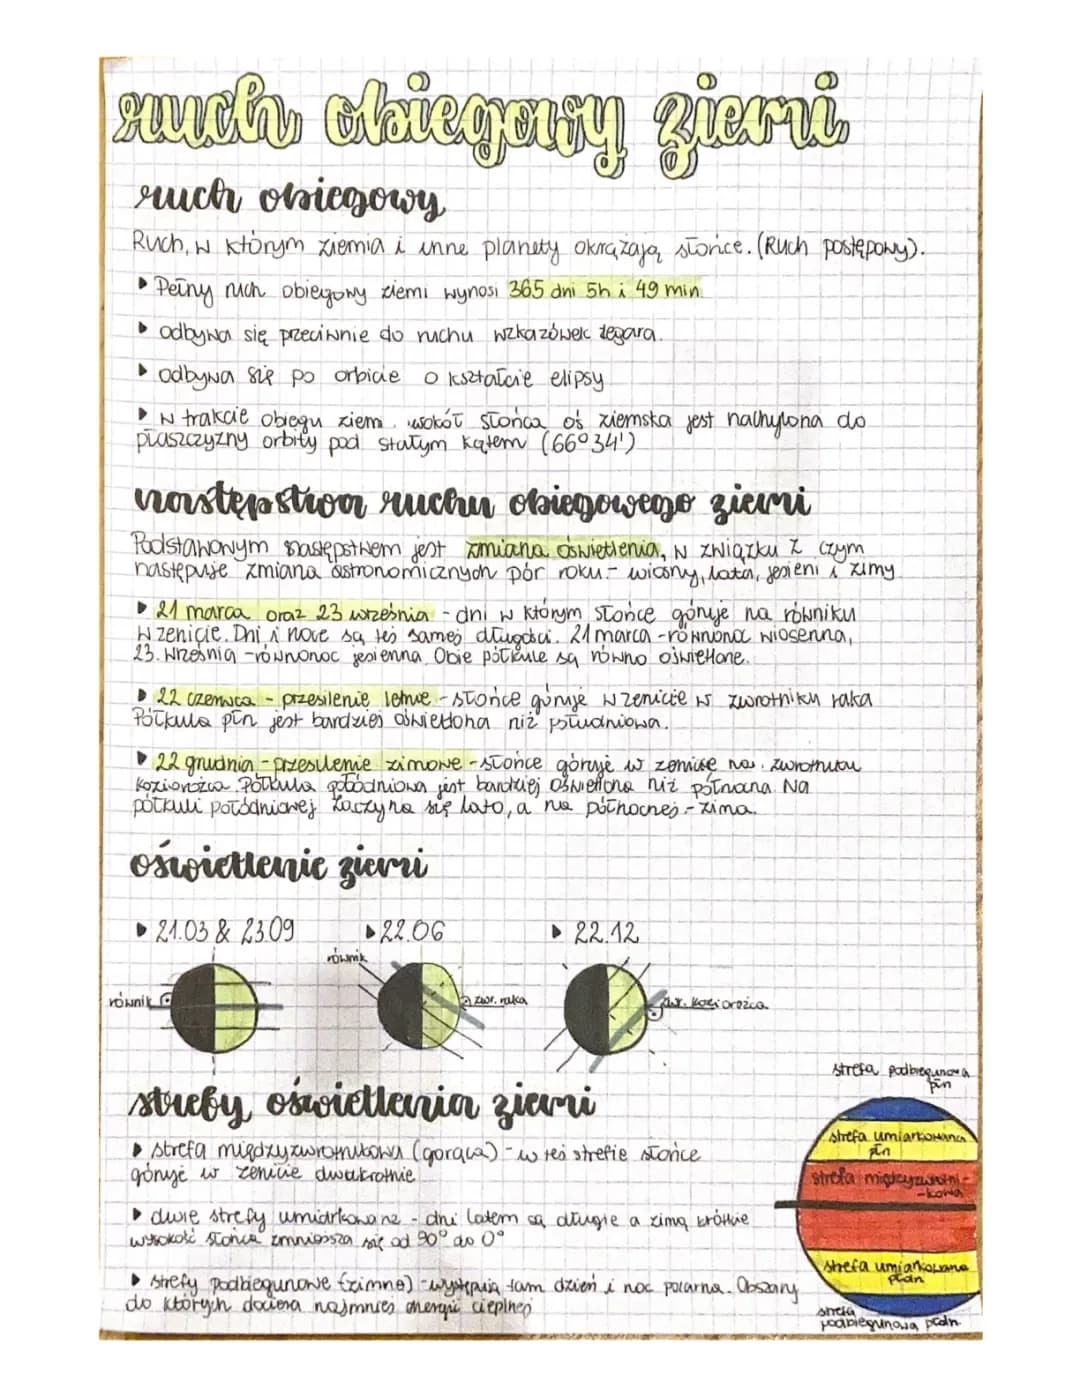 ruch obiegowy ziemi
ruch obiegowy
Ruch, w którym ziemia i inne planety okrążają słońce. (Ruch postępowy).
▸ Pełny ruch obiegowy ziemi wynosi 365 dni 5h i 49 min.
▸ odbywa się przeciwnie do ruchu wzkazówek zegara.
▸ odbywa się po orbicie o kształcie elipsy
▸ w trakcie obiegu ziemi wokół słońca oś ziemska jest nachylona do
płaszczyzny orbity pod stałym kątem (66°34')
następstwa ruchu obiegowego ziemi
Podstawowym następstwem jest zmiana oświetlenia, w związku z czym
następuje zmiana astronomicznych pór roku - wiosny, lata, jesieni i zimy
▸ 21 marca oraz 23 września - dni w którym słońce góruje na równiku
w zenicie. Dni i noce są tej samej długości. 21 marca - równonoc wiosenna,
23. września - równonoc jesienna. Obie półkule są równo oświetlone.
▸ 22 czerwca - przesilenie letnie - słońce góruje w zenicie w zwrotniku raka
Półkula płn jest bardziej oświetlona niż południowa.
▸ 22 grudnia - przesilenie zimowe - słońce góruje w zenicie na zwrotniku
koziorożca. Półkula połódniowa jest bardziej oświetlona niż północna Na
półkuli połódniowej zaczyna się lato, a na północnej - zima.
oświetlenie ziemi
▸ 21.03 & 23.09 ▸ 22.06 ▸ 22.12
równik
równik zwr. raka zwr. koziorożca
strefy oświetlenia ziemi
▸ strefa międzyzwrotnikowa (gorąca) - w tej strefie słońce
góruje w zenicie dwukrotnie
▸ dwie strefy umiarkowane - dni latem są długie a zimą krótkie
wysokość słońca zmniejsza się od 90° do 0°
▸ strefy podbiegunowe (zimne) - występują tam dzień i noc polarna. Obszary
do których dociera najmniej energii cieplnej
strefa podbiegunowa
płn
strefa umiarkowana
płn
strefa międzyzwrotni-
-kowa
strefa umiarkowana
płdn
strefa
podbiegunowa płdn.